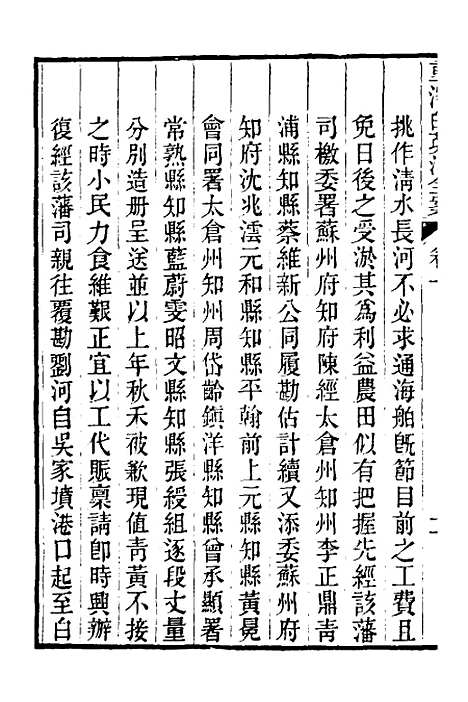 卷一
挑作淸水長河不必求通海舶旣節目前之工費且
免日後之受淤其爲利益農田似有把握先經該藩
司檄委署蘇州府知府陳經太倉州知州李正鼎靑
浦縣知縣蔡維新公同履勘估計續又添委蘇州府
知府沈兆澐元和縣知縣平翰前上元縣知縣黃冕
會同署太倉州知州周岱齡鎭洋縣知縣曾承顯署
常熟縣知縣藍蔚雯昭文縣知縣張綬組逐段丈量
分別造册呈送並以上年秋禾被歉現值靑黃不接
之時小民力食維艱正宜以工代賑稟請卽時興辦
復經該藩司親往覆勘劉河自吳家墳港口起至白